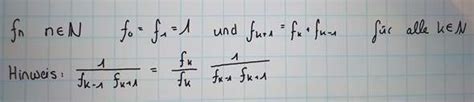 fₙ n∈ℕ f₀ = f₁ = 1 und fₖ₊₁ = fₖ + fₖ₋₁ für alle k∈ℕ
Hinweis: 1/(fₖ₋₁ fₖ₊₁) = fₖ/fₖ 1/(fₖ₋₁ fₖ₊₁)